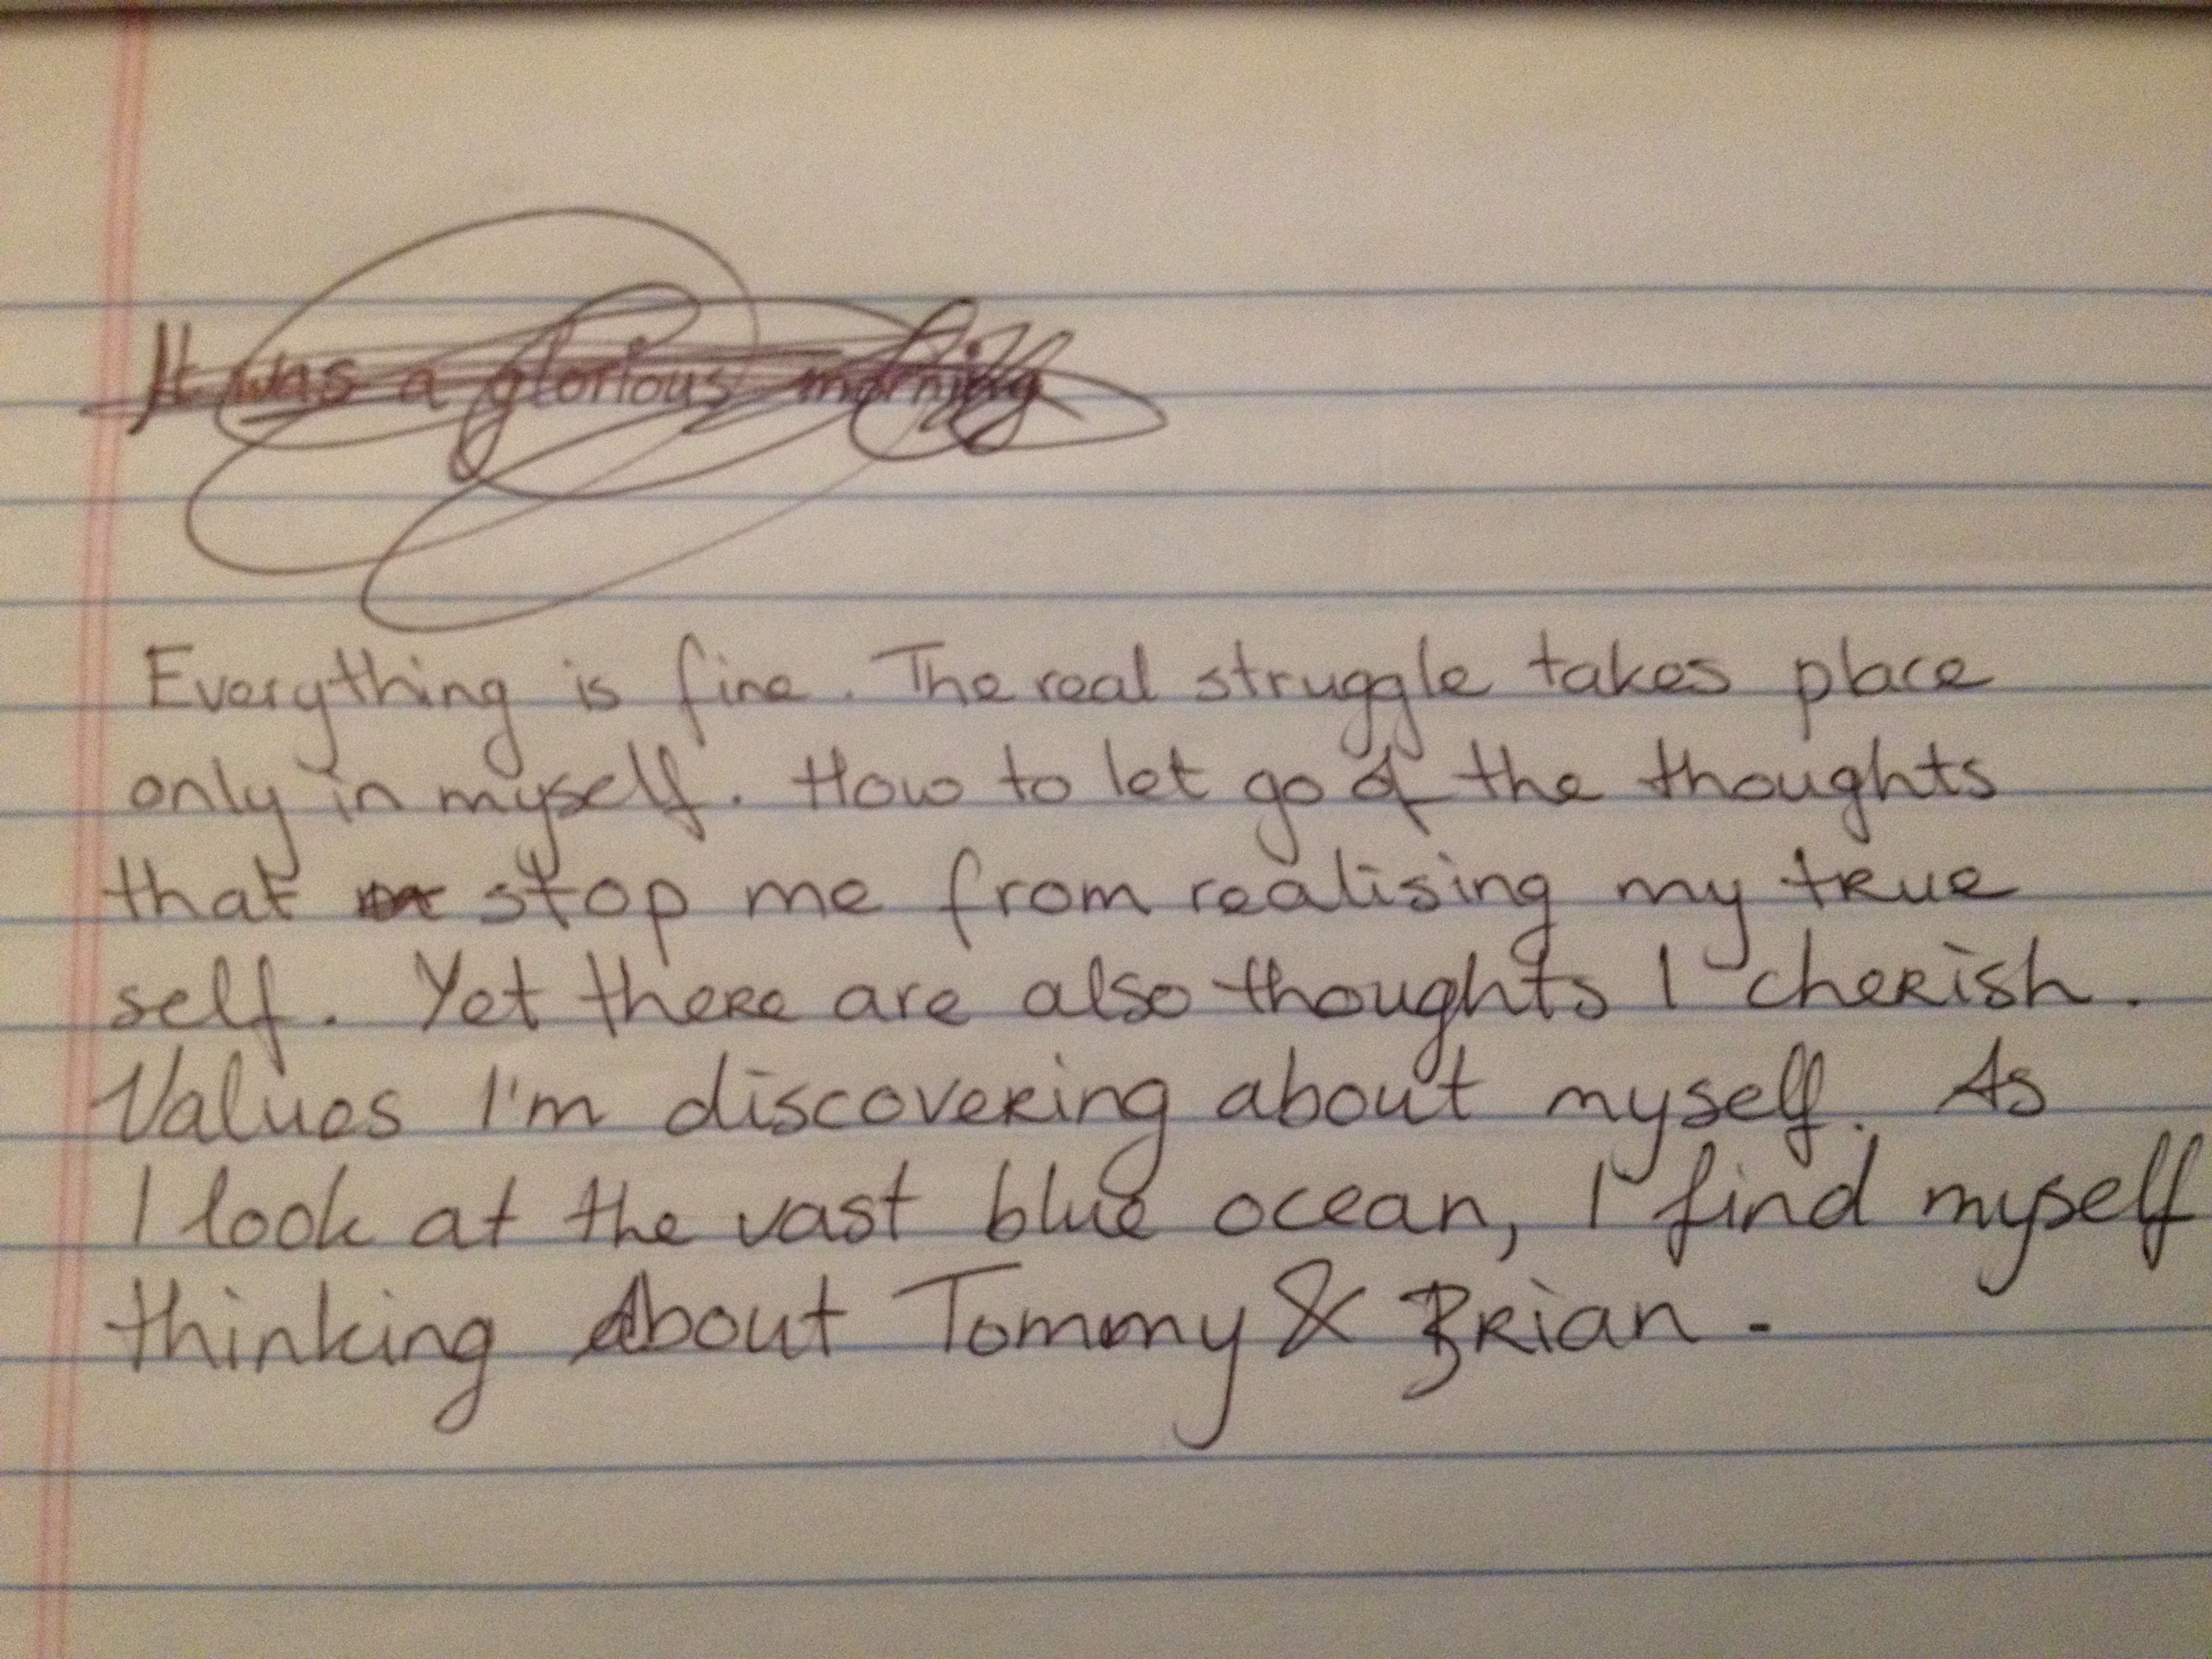 It was a glorious morning
Everything is fine. The real struggle takes place
only in myself. How to let go of the thoughts
that stop me from realising my true
self. Yet there are also thoughts I cherish.
Values I'm discovering about myself. As
I look at the vast blue ocean, I find myself
thinking about Tommy & Brian.